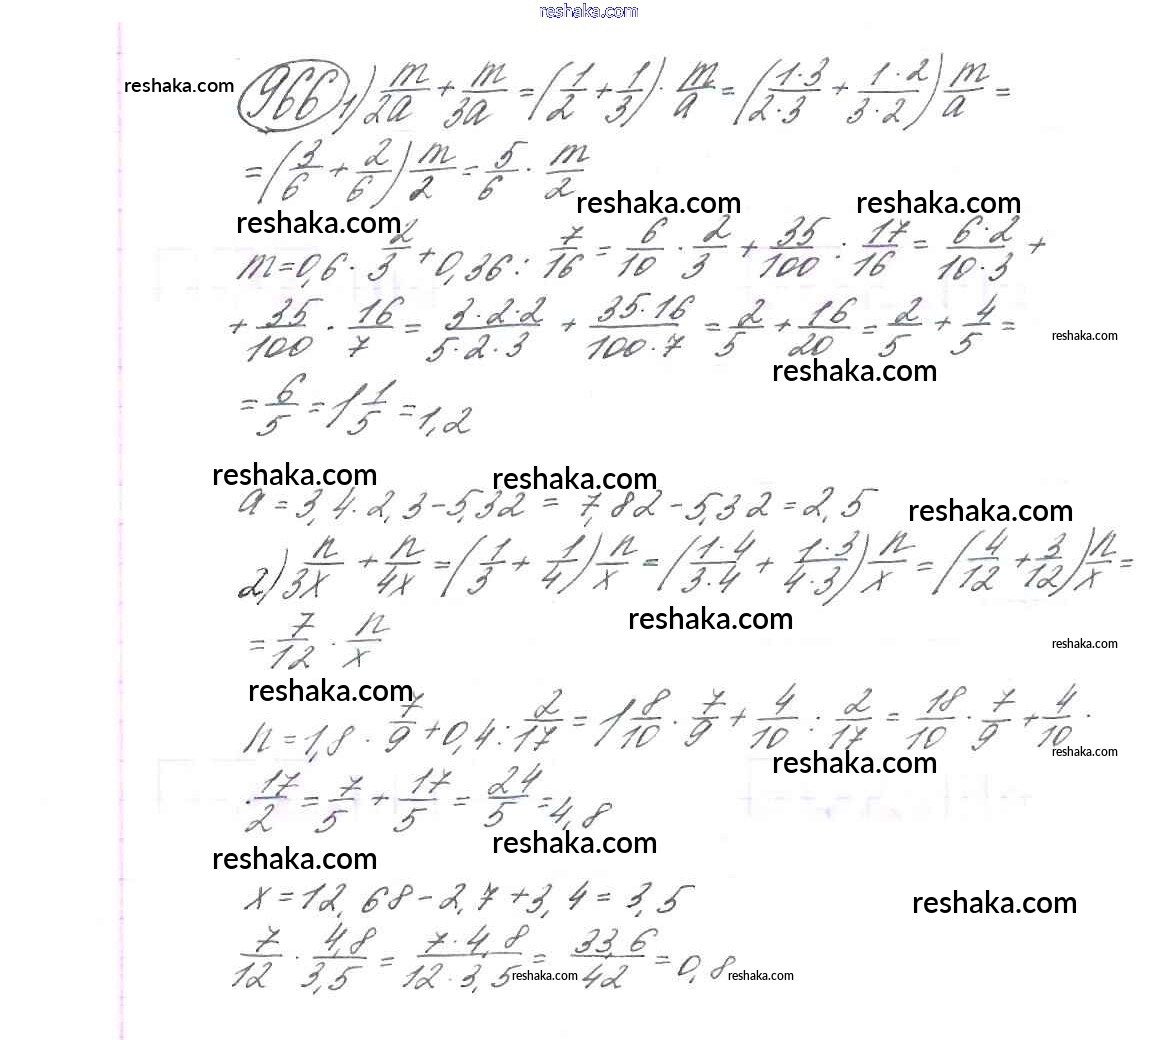 reshaka.com
reshaka.com
966 1) m/2a + m/3a = (1/2 + 1/3) · m/a = (1·3/2·3 + 1·2/3·2) m/a =
= (3/6 + 2/6) m/2 = 5/6 · m/2
reshaka.com reshaka.com reshaka.com
m = 0,6 · 2/3 + 0,36 : 7/16 = 6/10 · 2/3 + 35/100 : 17/16 = 6·2/10·3 +
+ 35/100 · 16/7 = 3·2·2/5·2·3 + 35·16/100·7 = 2/5 + 16/20 = 2/5 + 4/5 =
reshaka.com
reshaka.com
= 6/5 = 1 1/5 = 1,2
reshaka.com reshaka.com
a = 3,4 · 2,3 - 5,32 = 7,82 - 5,32 = 2,5
reshaka.com
2) n/3x + n/4x = (1/3 + 1/4) n/x = (1·4/3·4 + 1·3/4·3) n/x = (4/12 + 3/12) n/x =
reshaka.com
= 7/12 · n/x
reshaka.com
reshaka.com
n = 1,8 · 7/9 + 0,4 : 2/17 = 1 8/10 · 7/9 + 4/10 : 2/17 = 18/10 · 7/9 + 4/10 ·
reshaka.com
reshaka.com
· 17/2 = 7/5 + 17/5 = 24/5 = 4,8
reshaka.com reshaka.com
x = 12,68 - 2,7 + 3,4 = 3,5
reshaka.com
7/12 · 4,8/3,5 = 7·4,8/12·3,5 = 33,6/42 = 0,8
reshaka.com reshaka.com